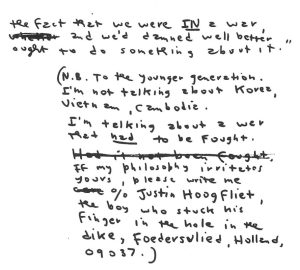 the fact that we were IN a war,
and we'd damned well better
ought to do something about it."
(N.B. To the younger generation.
I'm not talking about Korea,
Vietnam, Cambodia.
I'm talking about a war
that had to be fought.
Had it not been fought,
If my philosophy irritates
yours, please write me
% Justin Hoogfliet,
the boy who stuck his
finger in the hole in the
dike, Foedersvlied, Holland,
09037.)